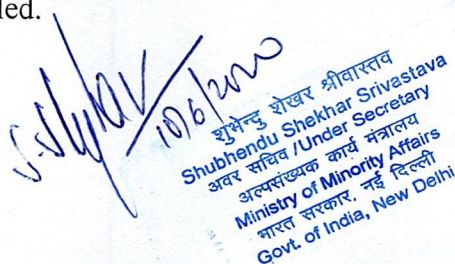 led.
10/6/2020
शुभेन्दु शेखर श्रीवास्तव
Shubhendu Shekhar Srivastava
अवर सचिव /Under Secretary
अल्पसंख्यक कार्य मंत्रालय
Ministry of Minority Affairs
भारत सरकार, नई दिल्ली
Govt. of India, New Delhi